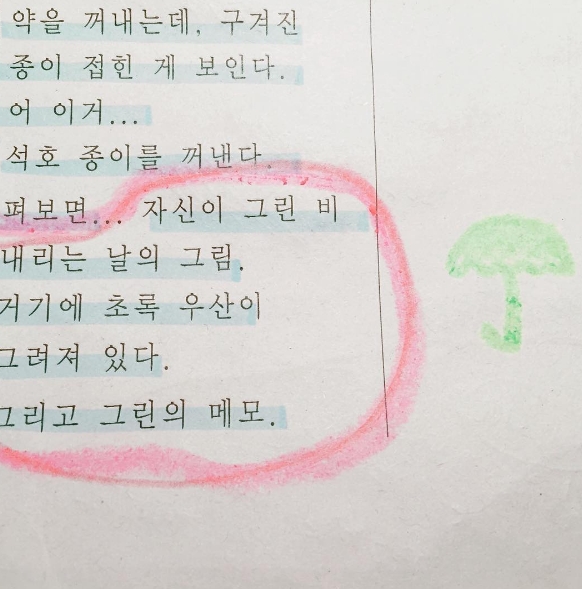 약을 꺼내는데, 구겨진
종이 접힌 게 보인다.
어 이거...
석호 종이를 꺼낸다.
펴보면... 자신이 그린 비
내리는 날의 그림.
거기에 초록 우산이
그려져 있다.
그리고 그린의 메모.